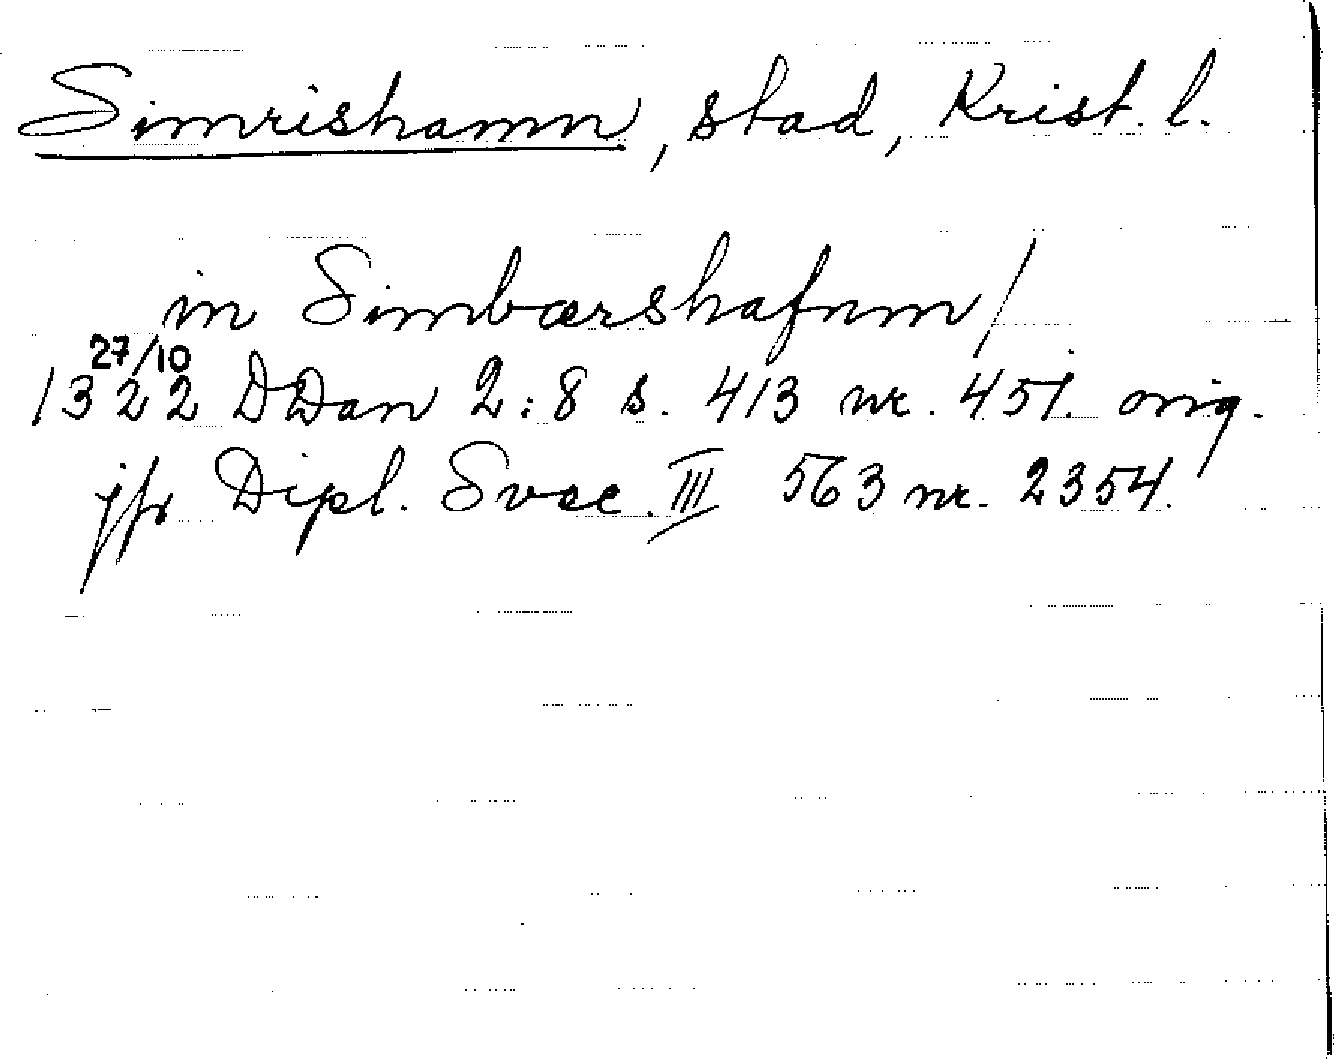 Simrishamn, stad, Krist. l.
in Simbærshafnm/
27/10
1322 DDan 2:8 s. 413 nr. 451. orig.
jfr Dipl. Svec. III 563 nr. 2354.